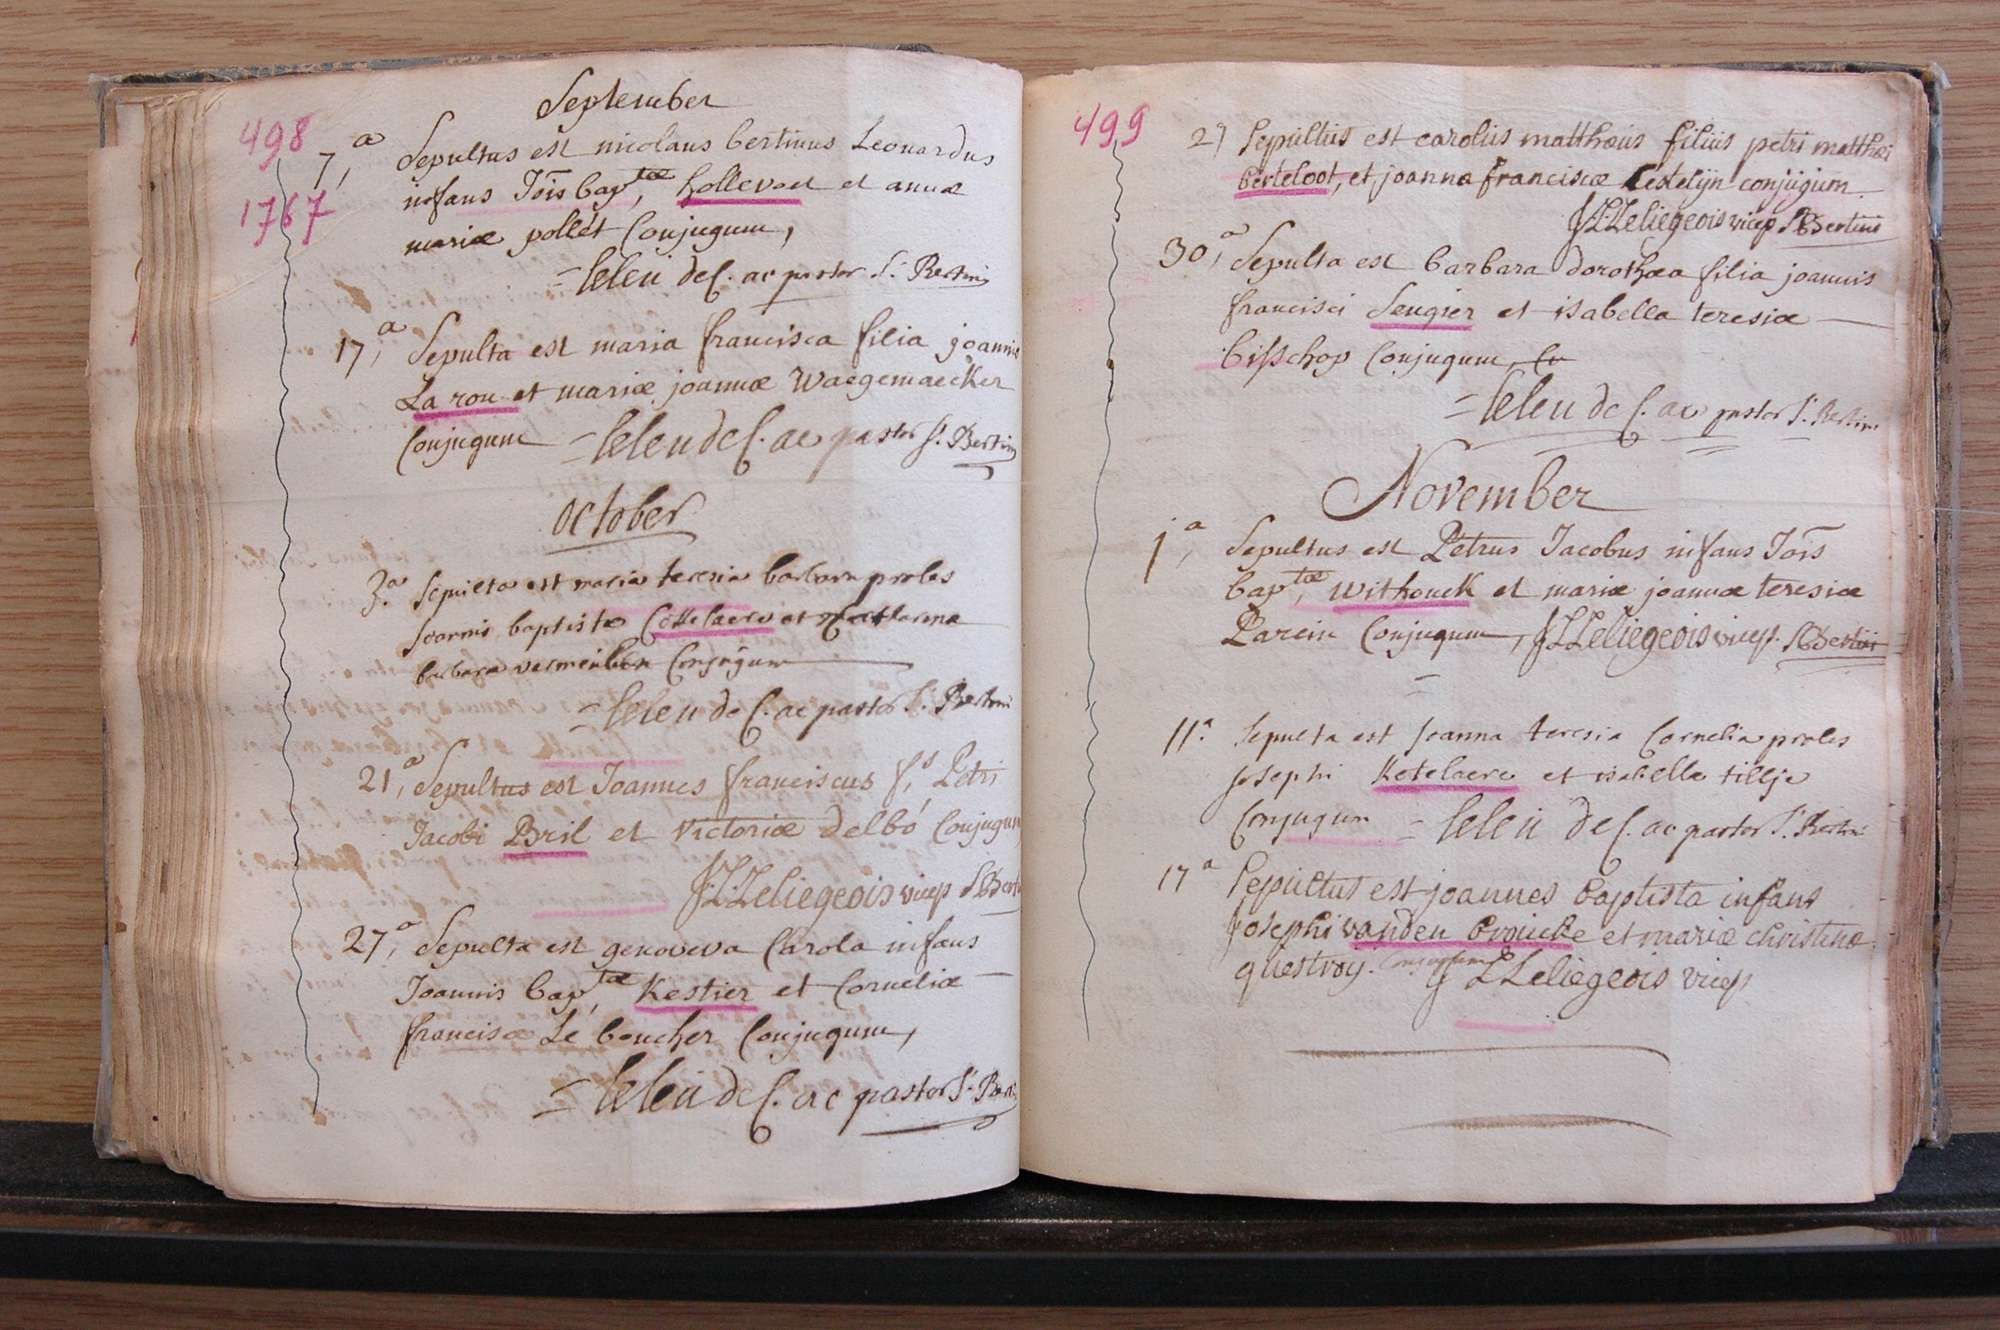 498
1767
September
7,a Sepultus est nicolaus bertinus Leonardus
infans Jōis bap,tæ hollevoet et annæ
mariæ pollét Conjugum,
= leleu dec. ac pastor St. Bertini
17,a Sepulta est maria francisca filia joannis
La rou et mariæ joannæ Waegemaecker
Conjugum = leleu dec. ac pastor St. Bertini
October
3.a Sepulta est maria teresia barbara proles
Joannis baptistæ Cettelaere et
barbara Conjugum
= leleu dec. ac pastor St. Bertini
21,a Sepultus est Joannes franciscus f,s Petri
Jacobi Bril et Victoriæ delbó Conjugum
J:L:Leliegeois vicep St Bertini
27,a Sepulta est genoveva Carola infans
Joannis bap,tæ Kestier et Corneliæ
franciscæ Le boucher Conjugum,
= leleu dec. ac pastor St.
499
27 Sepultus est carolus matthæus filius petri matthæi
berteloot, et joannæ franciscæ Cestelijn conjugum
J:L:Leliegeois vicep St Bertini
30,a Sepulta est barbara dorothæa filia joannis
francisci Sengier et isabella teresiæ
bisschop Conjugum
= leleu dec. ac pastor St. Bertini
November
1,a Sepultus est Petrus Jacobus infans Jōis
bap,tæ Withouck et mariæ joannæ teresiæ
Parein Conjugum, J L Leliegeois vicep. St Bertini
11.a Sepulta est Joanna teresia Cornelia proles
Josephi Ketelaere et isabelle tillje
Conjugum = leleu dec. ac pastor St. Bertini
17a Sepultus est joannes baptista infans
Josephi vanden brouke et mariæ christinæ
questroy. Conjugum J L Leliegeois vicep